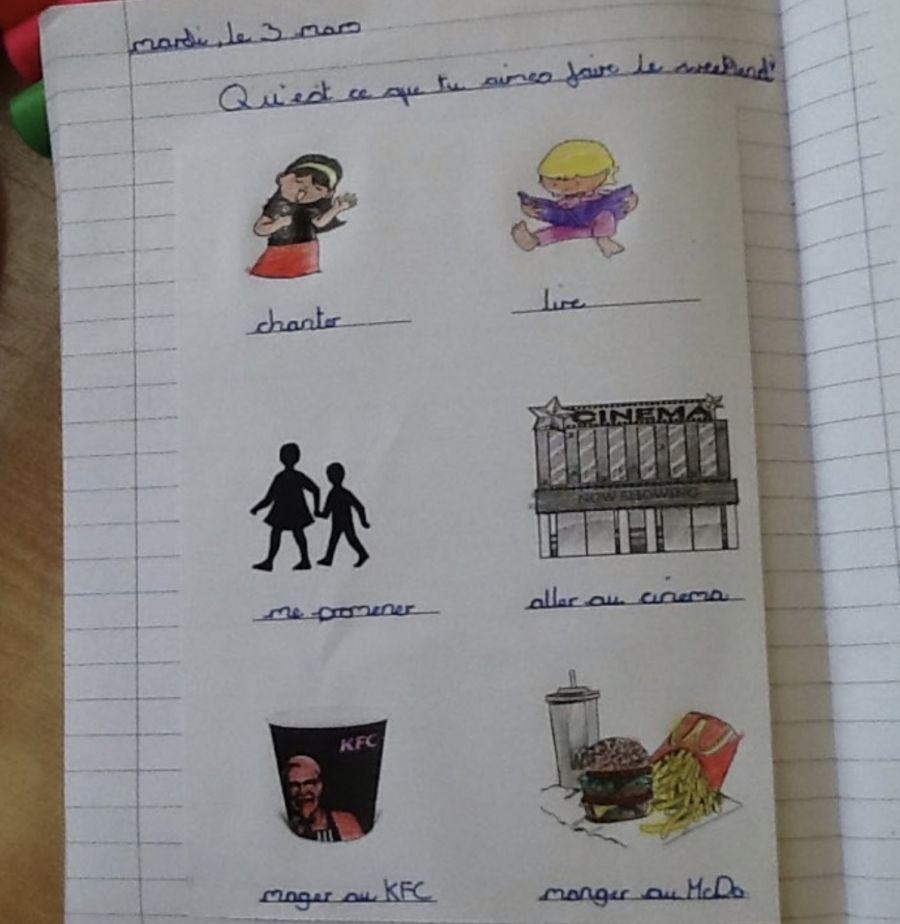 mardi, le 3 mars
Qu'est ce que tu aimes faire le weekend?
chanter
lire
CINEMA
NOW SHOWING
me promener
aller au cinema
KFC
mager au KFC
manger au McDo